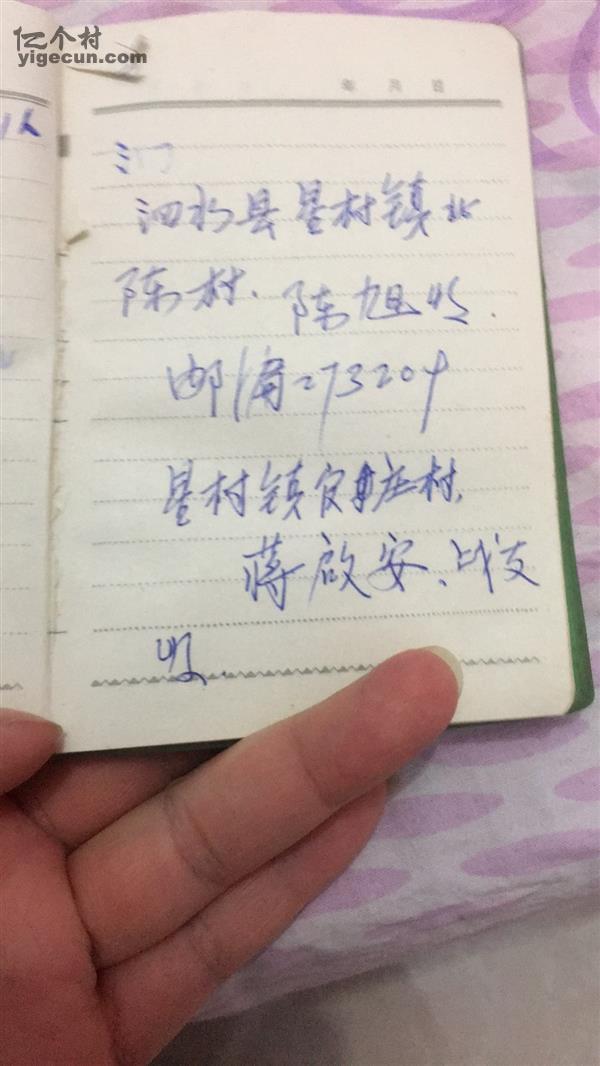 亿个村
yigecun.com
年 月 日
人
氵冂
泗水县星村镇北
陈村. 陈旭明.
邮编273204
星村镇官庄村.
蒋啟安、战友